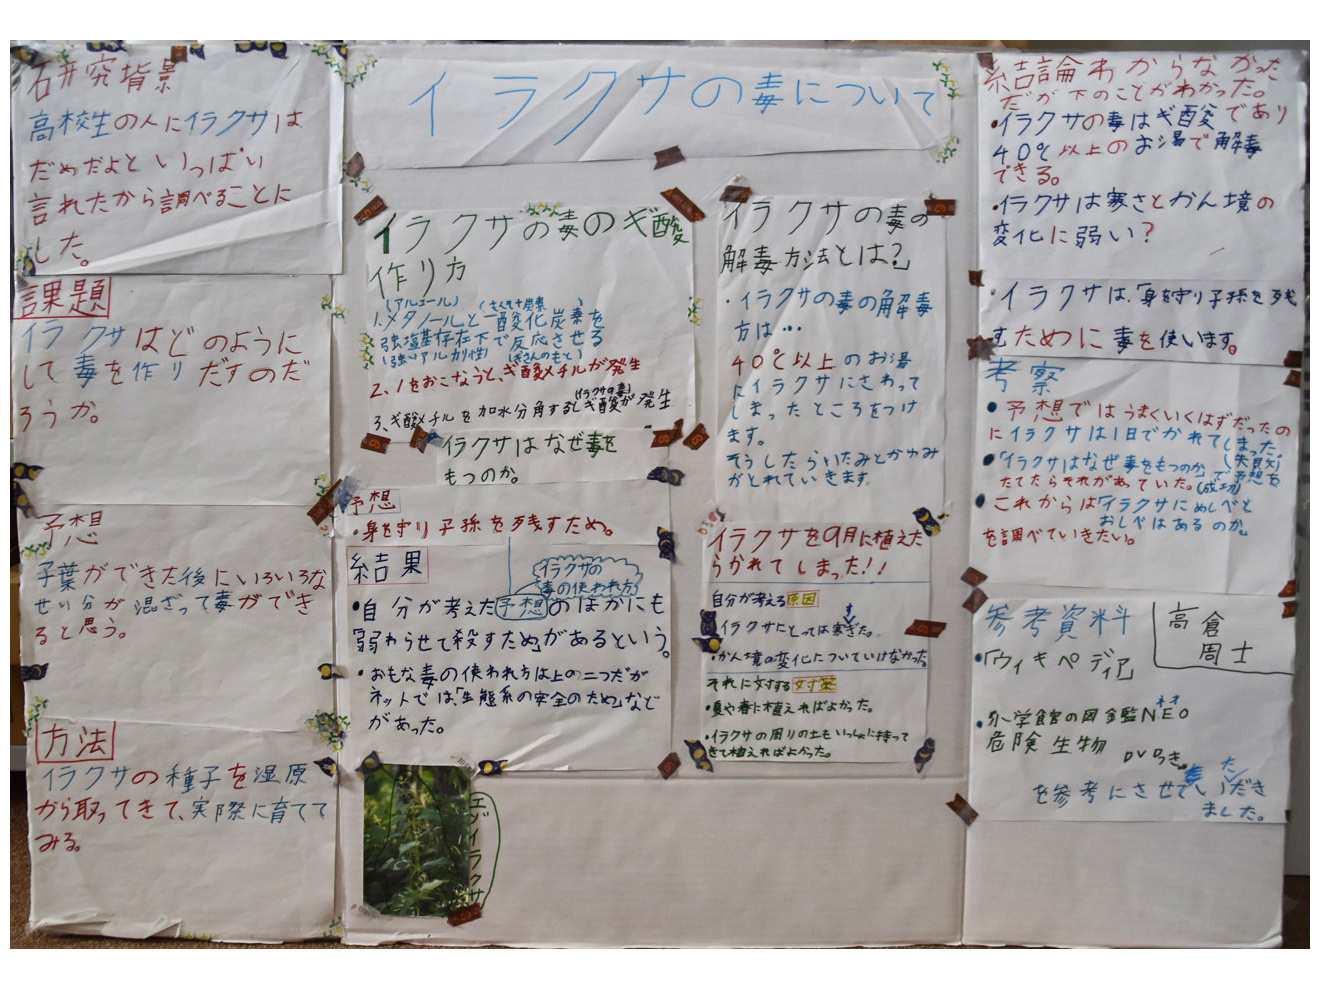 イラクサの毒について
研究背景
高校生の人にイラクサは
だめだよといっぱい
言れたから調べることに
した。
課題
イラクサはどのように
して毒を作りだすのだ
ろうか。
予想
子葉ができた後にいろいろな
せい分が混ざって毒ができ
ると思う。
方法
イラクサの種子を湿原
から取ってきて、実際に育てて
みる。
イラクサの毒のギ酸
作り方
(アルコール) (さんそ+炭素)
1.メタノールと一酸化炭素を
強塩基存在下で反応させる
(強いアルカリ性) (ぎさんのもと)
2、1をおこなうと、ギ酸メチルが発生
(イラクサの毒)
3、ギ酸メチルを加水分角するしギ酸が発生
イラクサはなぜ毒を
もつのか。
予想
・身を守り子孫を残すため。
結果
イラクサの
毒の使われ方
・自分が考えた予想のほかにも
「弱わらせて殺すため」があるという。
・おもな毒の使われ方は上の二つだが
ネットでは、「生態系の安全のため」など
があった。
エゾイラクサ
イラクサの毒の
解毒方法とは?
・イラクサの毒の解毒
方は・・・
40℃以上のお湯
にイラクサにさわって
しまったところをつけ
ます。
そうしたらいたみとかゆみ
がとれていきます。
イラクサを9月に植えた
らかれてしまった!!
自分が考える原因
・イラクサにとっては寒すぎた。
・かん境の変化についていけなかった
それに対する対策
・夏や春に植えればよかった。
・イラクサの周りの土もいっしょに持って
きて植えればよかった。
結論わからなかった
だが下のことがわかった。
・イラクサの毒はギ酸であり
40℃以上のお湯で解毒
できる。
・イラクサは寒さとかん境の
変化に弱い?
・イラクサは、「身を守り子孫を残
すために毒を使います。
考察
・予想ではうまくいくはずだったの
にイラクサは1日でかれてしまった。
(失敗)
・「イラクサはなぜ毒をもつのか」で予想を
たてたらそれがあていた。(成功)
・これからは「イラクサにめしべと
おしべはあるのか」
を調べていきたい。
参考資料
高倉
周士
・「ウィキペディア」
ネオ
・小学館の図鑑NEO
危険生物
DVDつき
を参考にさせていただき
ました。